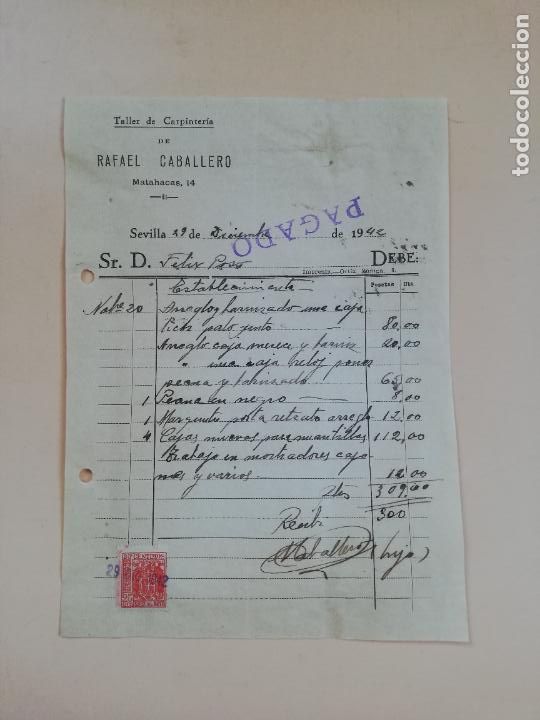 Taller de Carpintería
DE
RAFAEL CABALLERO
Matahacas, 14
PAGADO
Sevilla 29 de Diciembre de 1942
Sr. D. Felix Pozo DEBE:
Imprenta.—Ortiz Zúñiga,
Pesetas Cts
Establecimiento
Nobre 20 Arreglo y barnizado una caja
palo junto — 80,00
Arreglo caja y barniz 20,00
" una caja reloj poner
peana y barnizado — 65,00
1 Peana en negro — 8,00
1 porta retrato arreglo 12,00
4 Cajas nuevas para mantillas 112,00
Trabajo en mostradores cajo
nes y varios — 12,00
Ptas 309,00
Recibí 300
RCaballero (hijo)
29 1942
todocoleccion